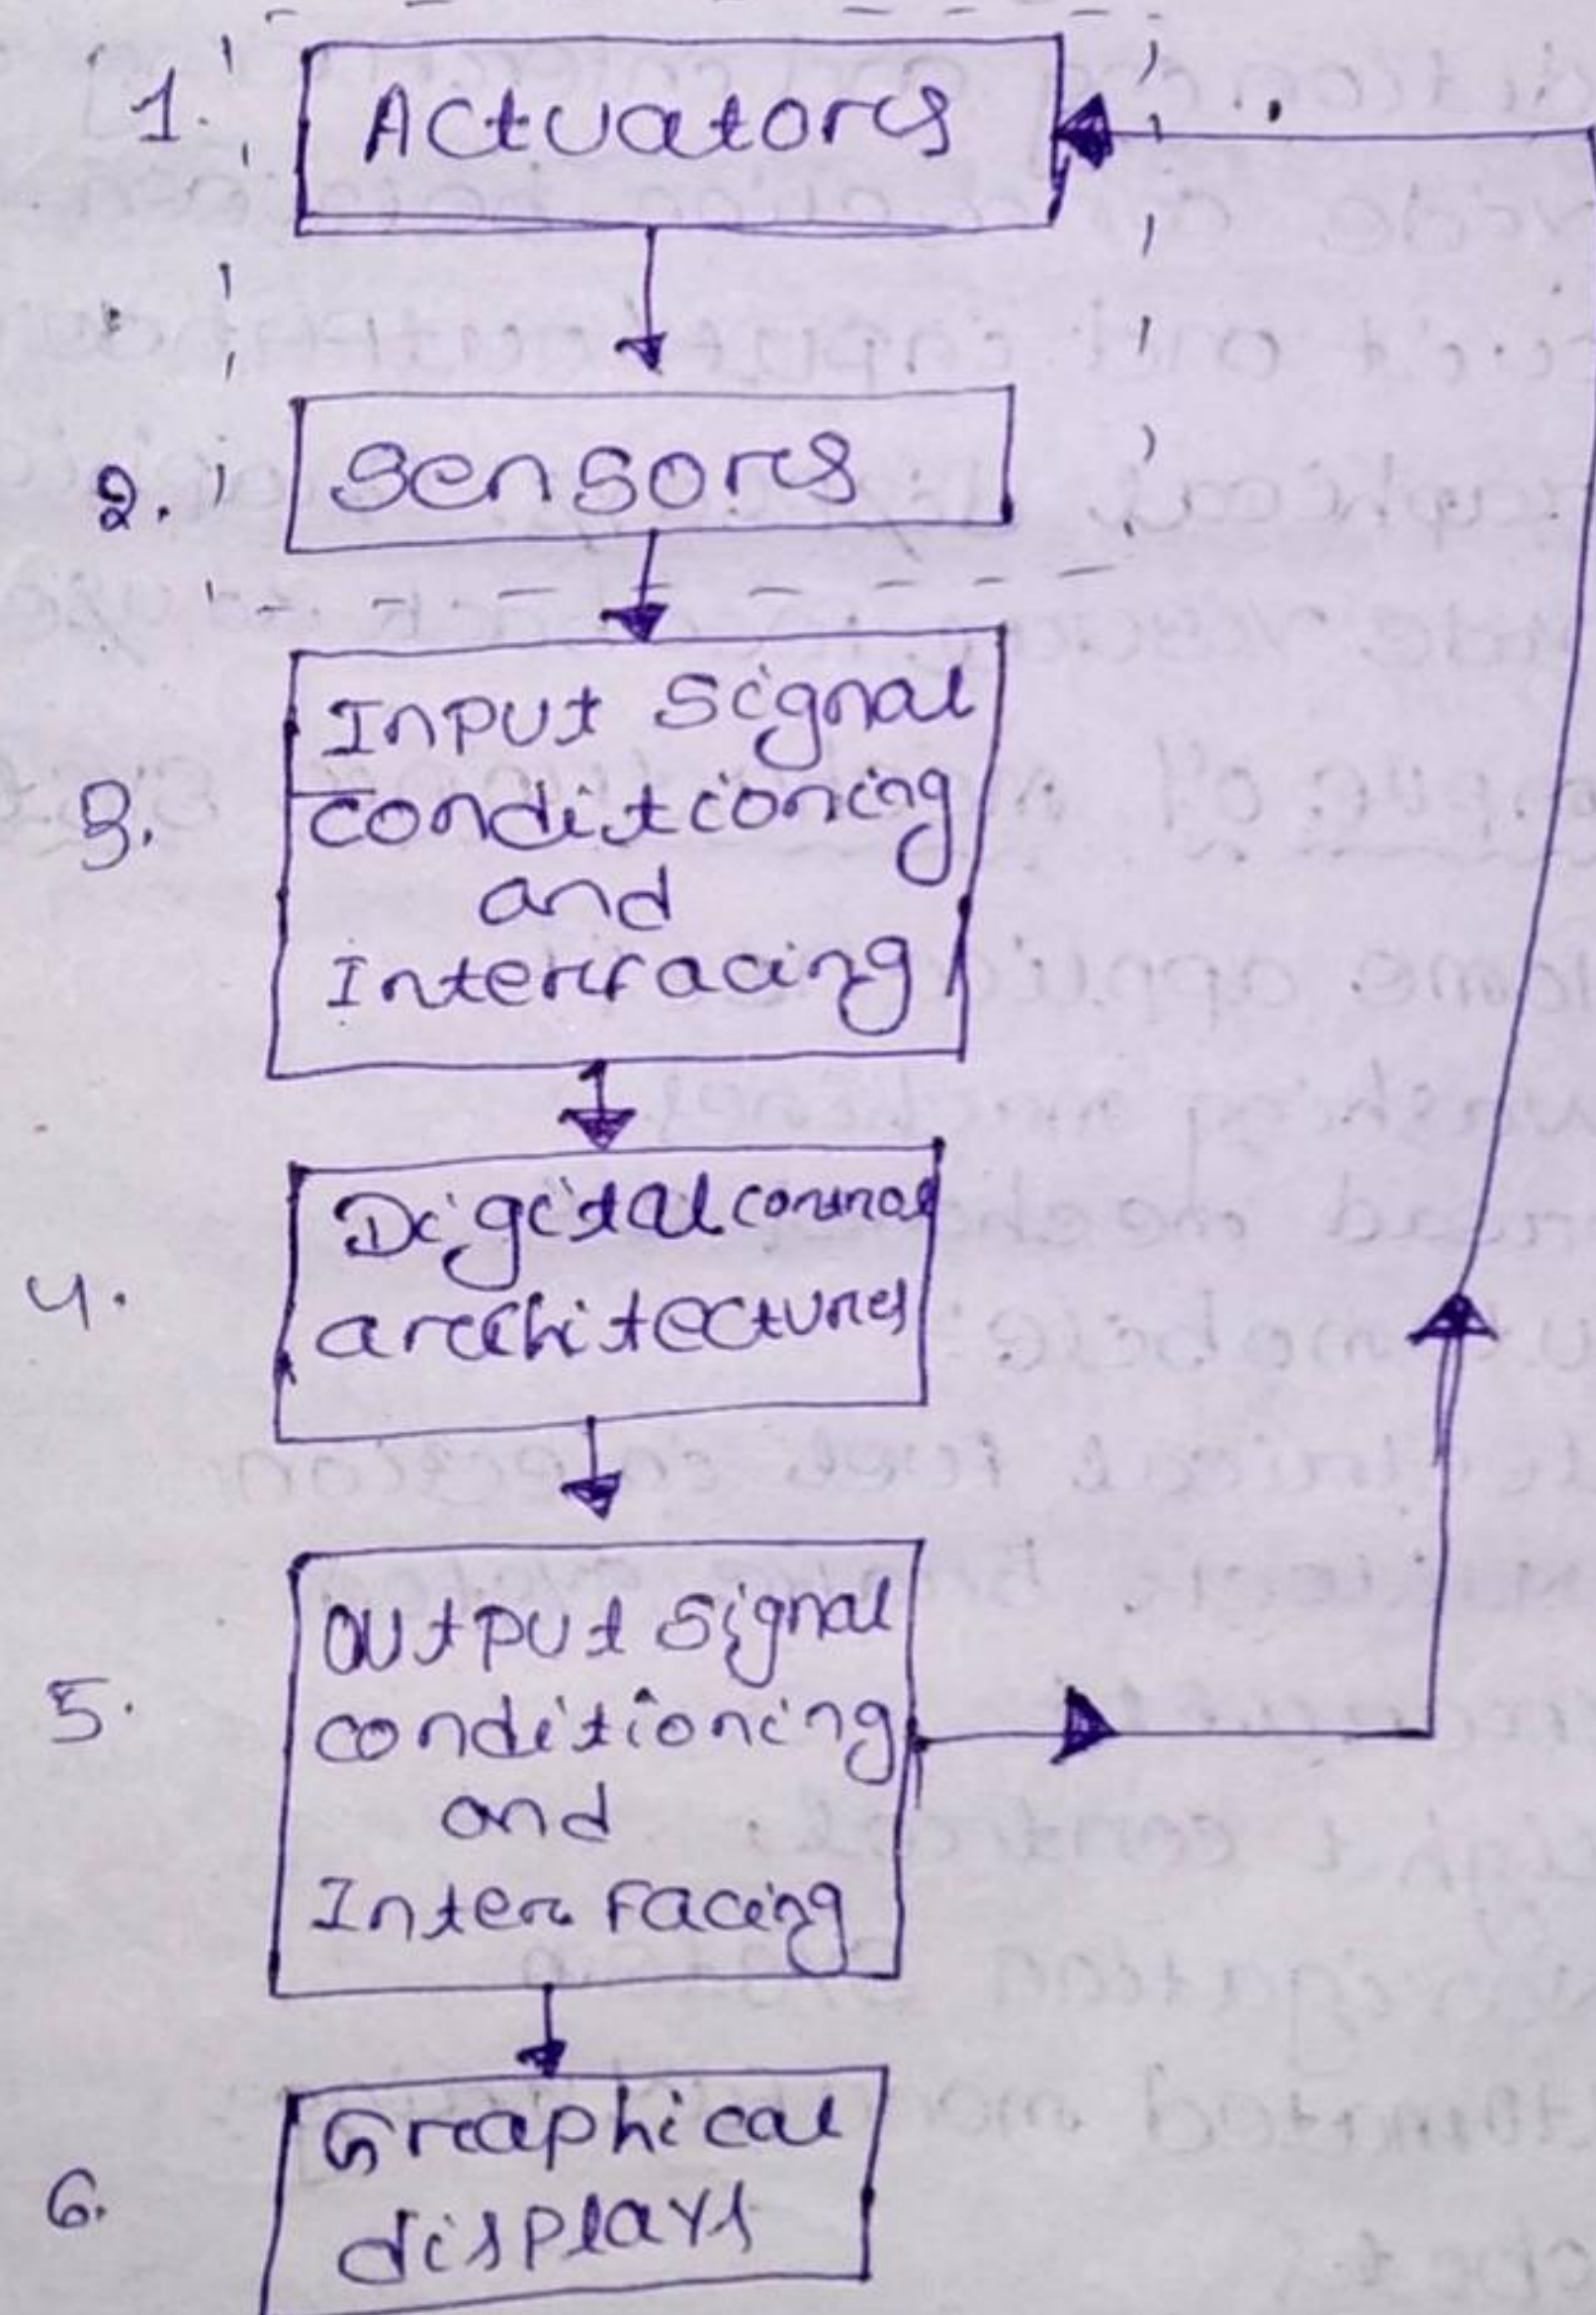 1. Actuators
2. Sensors
3. Input Signal
conditioning
and
Interfacing
4. Digital control
architectures
5. Output Signal
conditioning
and
Interfacing
6. Graphical
displays